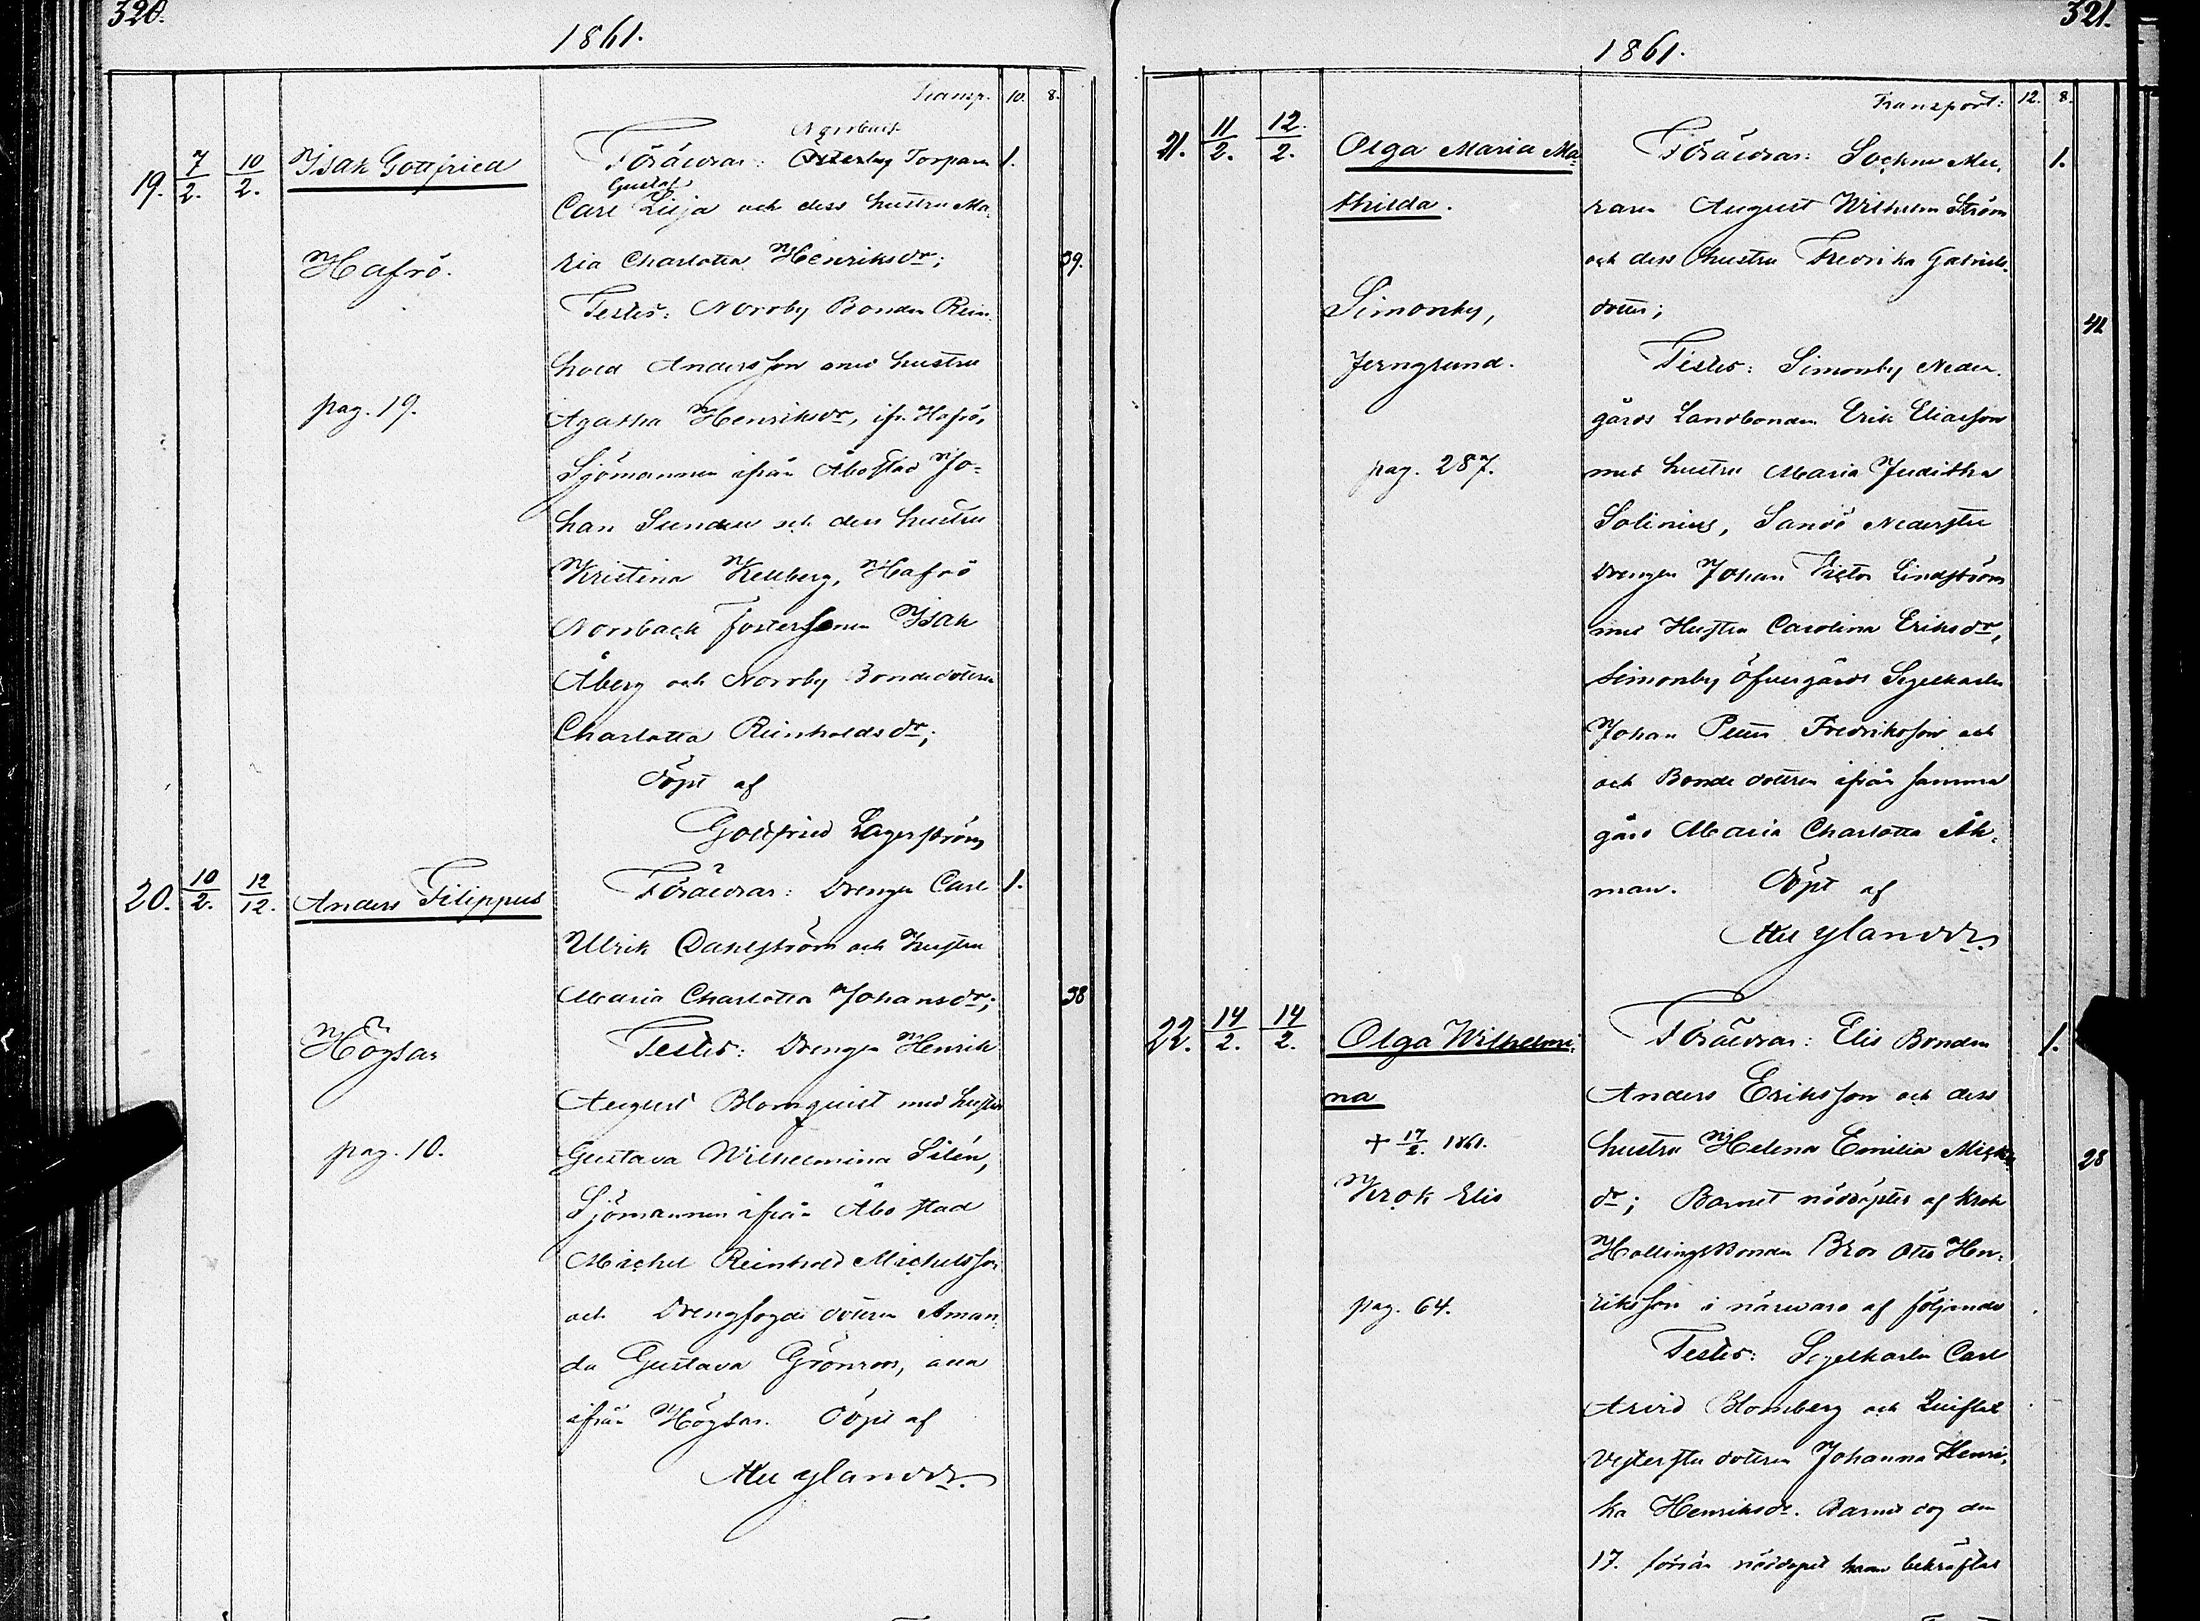 320.
1861.
Transp. 10. 8.
Norrback
19. 7/2. 10/2. Isak Gottfried Föräldrar: Österby Torparn 1.
Gustaf
Carl Lilja och dess hustru Ma-
Hafrö. ria Charlotta Henriksdr; 39.
Testes: Norrby Bonden Rein-
hold Andersson med hustru
pag. 19. Agatha Henriksdr, ifr. Hafrö,
Sjömannen ifrån Åbo stad Jo-
han Sundell och dess hustru
Kristina Kellberg, Hafrö
Norrback Fostersonen Isak
Åberg och Norrby Bondedottren
Charlotta Reinholdsdr;
döpt af
Gottfried Lagerström
20. 10/2. 12/12. Anders Filippus Föräldrar: Drengen Carl 1.
Ulrik Dahlström och hustru
Maria Charlotta Johansdr; 38
Högsar Testes: Drengen Henrik
August Blomquist med hustru
pag. 10. Gustava Wilhelmina Silén,
Sjömannen ifrån Åbo stad
Michel Reinhold Michelsson
och Drengfogde dottren Aman-
da Gustava Grönroos, alla
ifrån Högsar. Döpt af
Nylander.
321.
1861.
Transport: 12. 8.
21. 11/2. 12/2. Olga Maria Ma- Föräldrar: Sockne Mu- 1.
thilda. raren August Wilhelm Ström
och dess hustru Fredrika Gabriels-
Simonby, dotter; 42
Jerngrund. Testes: Simonby Neder-
gårds Landbonden Erik Eliasson
pag. 287. med hustru Maria Juditha
Solinius, Sandö Nederstu
Drengen Johan Victor Lindström
med Hustru Carolina Eriksdr,
Simonby Öfvergårds Segelkarln
Johan Petter Fredriksson och
och Bonde dottren ifrån samma
gård Maria Charlotta Åk-
man. Döpt af
Nylander.
22. 14/2. 14/2. Olga Wilhelmi- Föräldrar: Elis Bonden 1.
na Anders Eriksson och dess
+ 17/2. 1861. hustru Helena Emilia Mickels- 28
Krok Elis dr; Barnet nöddöptes af Krok
Hallings Bonden Bror Otto Hen-
pag. 64. riksson i närvaro af följande
Testes: Segelkarln Carl
Arvid Blomberg och
Vesterstu dottren Johanna Henri-
ka Henriksdr. Barnet dog den
17. förrän nöddopet hann bekräftas